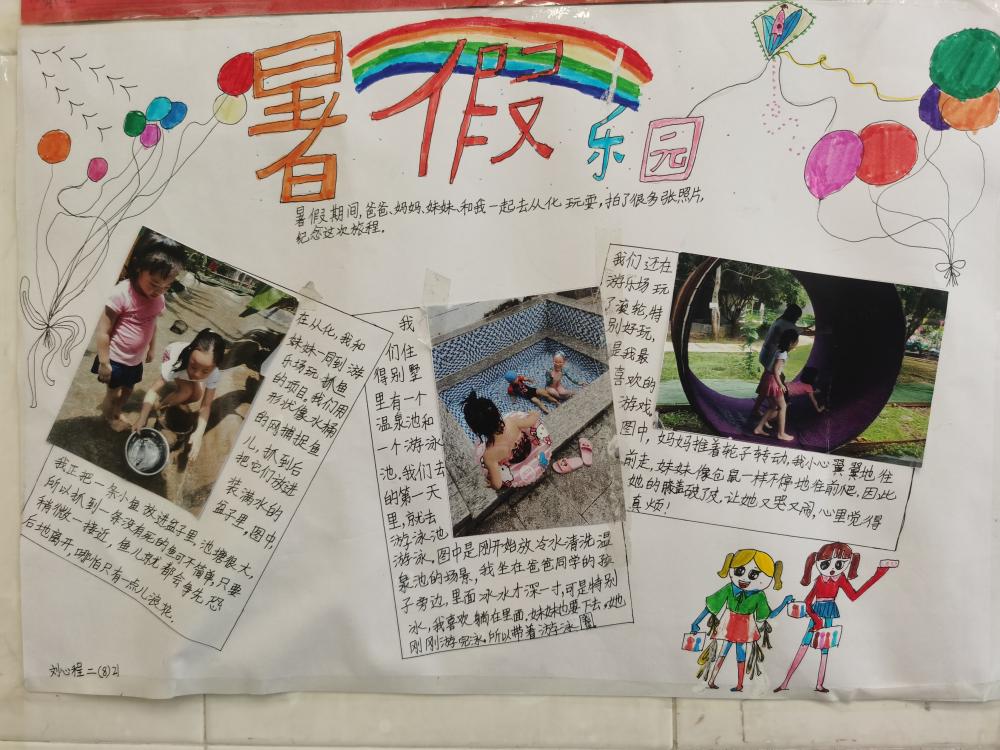 暑假乐园
暑假期间,爸爸、妈妈、妹妹、和我一起去从化玩耍,拍了很多张照片,
纪念这次旅程.
在从化,我和
妹妹一同到游
乐场玩抓鱼
的项目,我们用
形状像水桶
的网捕捉鱼
儿,抓到后
把它们放进
装满水的
盆子里,图中,
我正把一条小鱼放进盆子里.池塘很大,
所以抓到一条没有死的鱼可不简单,只要
稍微一接近,鱼儿就都会争先恐
后地离开,哪怕只有一点儿浪花.
我
们住
得别墅
里有一个
温泉池和
一个游泳
池.我们去
的第一天
里,就去
游泳池
游泳.图中是刚开始放冷水清洗温
泉池的场景,我坐在爸爸同学的孩
子旁边,里面冰水才深一寸,可是特别
冰,我喜欢躺在里面.妹妹也要下去,她
刚刚游完泳.所以带着游泳圈
我们还在
游乐场玩
了滚轮,特
别好玩,
是我最
喜欢的
游戏.
图中,妈妈推着轮子转动,我小心翼翼地往
前走,妹妹像仓鼠一样不停地往前爬,因此
她的膝盖破了皮,让她又哭又闹,心里觉得
真烦!
刘心程二(8)21